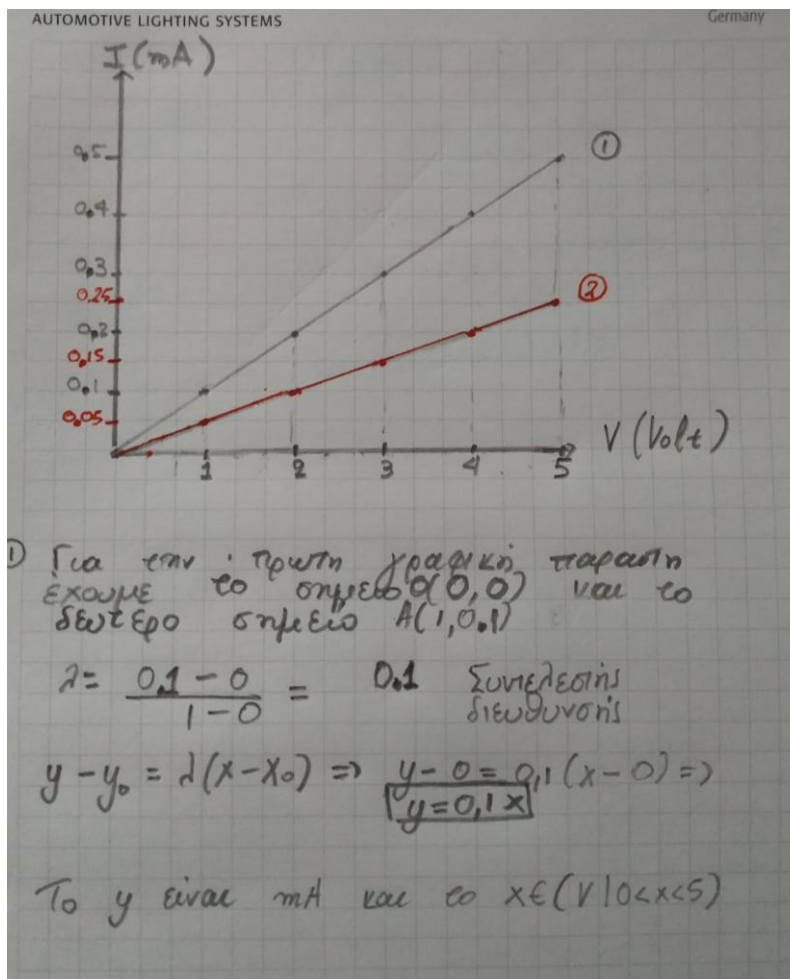 AUTOMOTIVE LIGHTING SYSTEMS
Germany
I (mA)
0.5
0.4
0.3
0.25
0.2
0.15
0.1
0.05
①
②
1 2 3 4 5
V (Volt)
① Για την πρωτη γραφική παρασtη
έχουμε το σημείο O(0,0) και το
δεύτερο σημείο A(1,0.1)
λ = (0.1 - 0) / (1 - 0) = 0.1 Συντελεστής
διευθυνσής
y - y₀ = λ(x - x₀) => y - 0 = 0,1 (x - 0) =>
y = 0,1 x
Το y είναι mA και το x ∈ (V | 0 < x < 5)